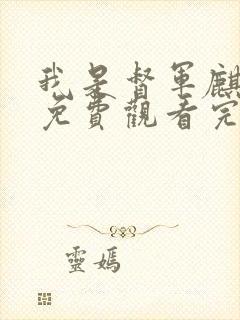 我是督軍麒
免費觀看完
靈媽